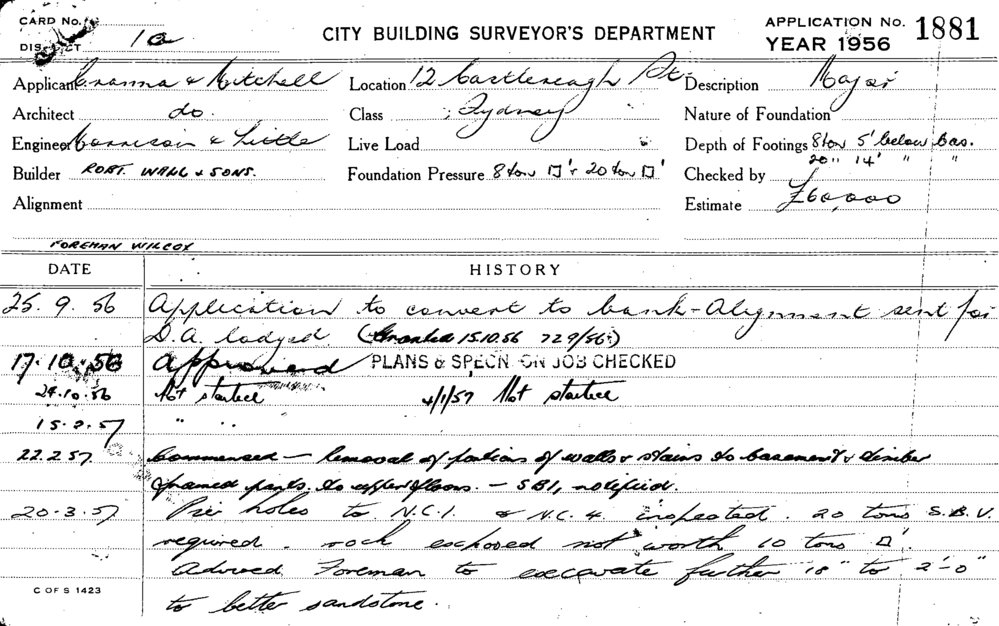 CARD No.
DISTRICT 1a
CITY BUILDING SURVEYOR'S DEPARTMENT
APPLICATION No. 1881
YEAR 1956
Applicant Cranna & Mitchell Location 12 Castlereagh St. Description Major
Architect do. Class Sydney Nature of Foundation
Engineer Morrison & Little Live Load Depth of Footings 8 ton 5' below bas.
20 " 14' " "
Builder ROBT. WALL & SONS. Foundation Pressure 8 ton □' & 20 ton □' Checked by
Alignment Estimate £60,000
FOREMAN WILCOX
DATE HISTORY
25. 9. 56 Application to convert to bank - Alignment sent for
D.A. lodged (Granted 15.10.56 729/56)
17.10.56 Approved PLANS & SPECN. ON JOB CHECKED
24.10.56 Not started 4/1/57 Not started
15.2.57 " "
22.2.57 Commenced - removal of portions of walls & stairs to basement & timber
framed parts to upper floors. - SBI, notified.
20-3.57 Pier holes to N.C.1. & N.C.4. inspected. 20 tons S.B.V.
required. rock exposed not worth 10 tons □'.
Advised Foreman to excavate further 18" to 2'-0"
to better sandstone.
C OF S 1423